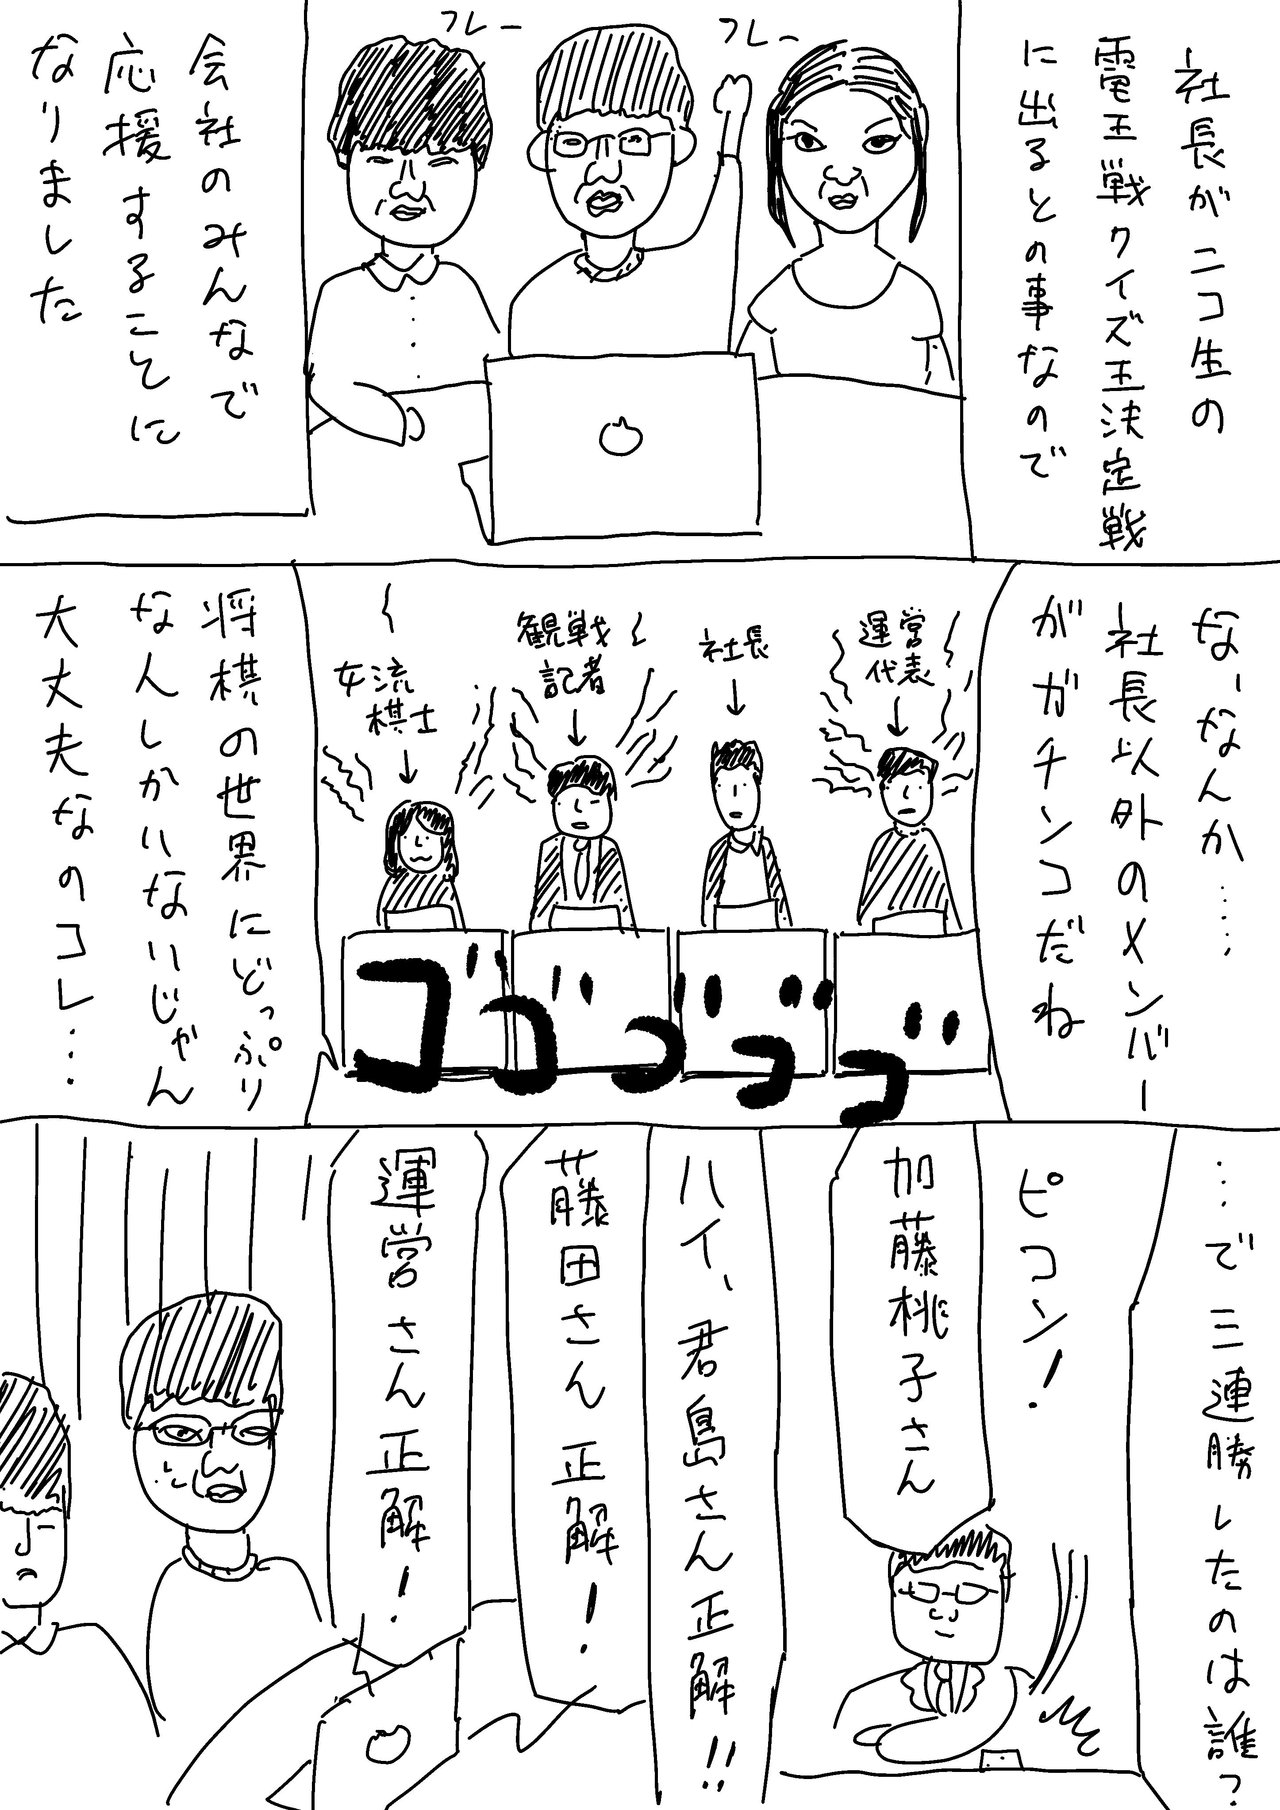 社長がニコ生の
電王戦クイズ王決定戦
に出るとの事なので
フレー
フレー
会社のみんなで
応援することに
なりました
な、なんか……
社長以外のメンバー
がガチンコだね
運営
代表
社長
観戦
記者
女流
棋士
ゴゴゴゴゴ
将棋の世界にどっぷり
なんしかいないじゃん
大丈夫なのコレ…
…で三連勝したのは誰？
ピコン！
加藤桃子さん
ハイ、君島さん正解!!
藤田さん正解！
運営さん正解！